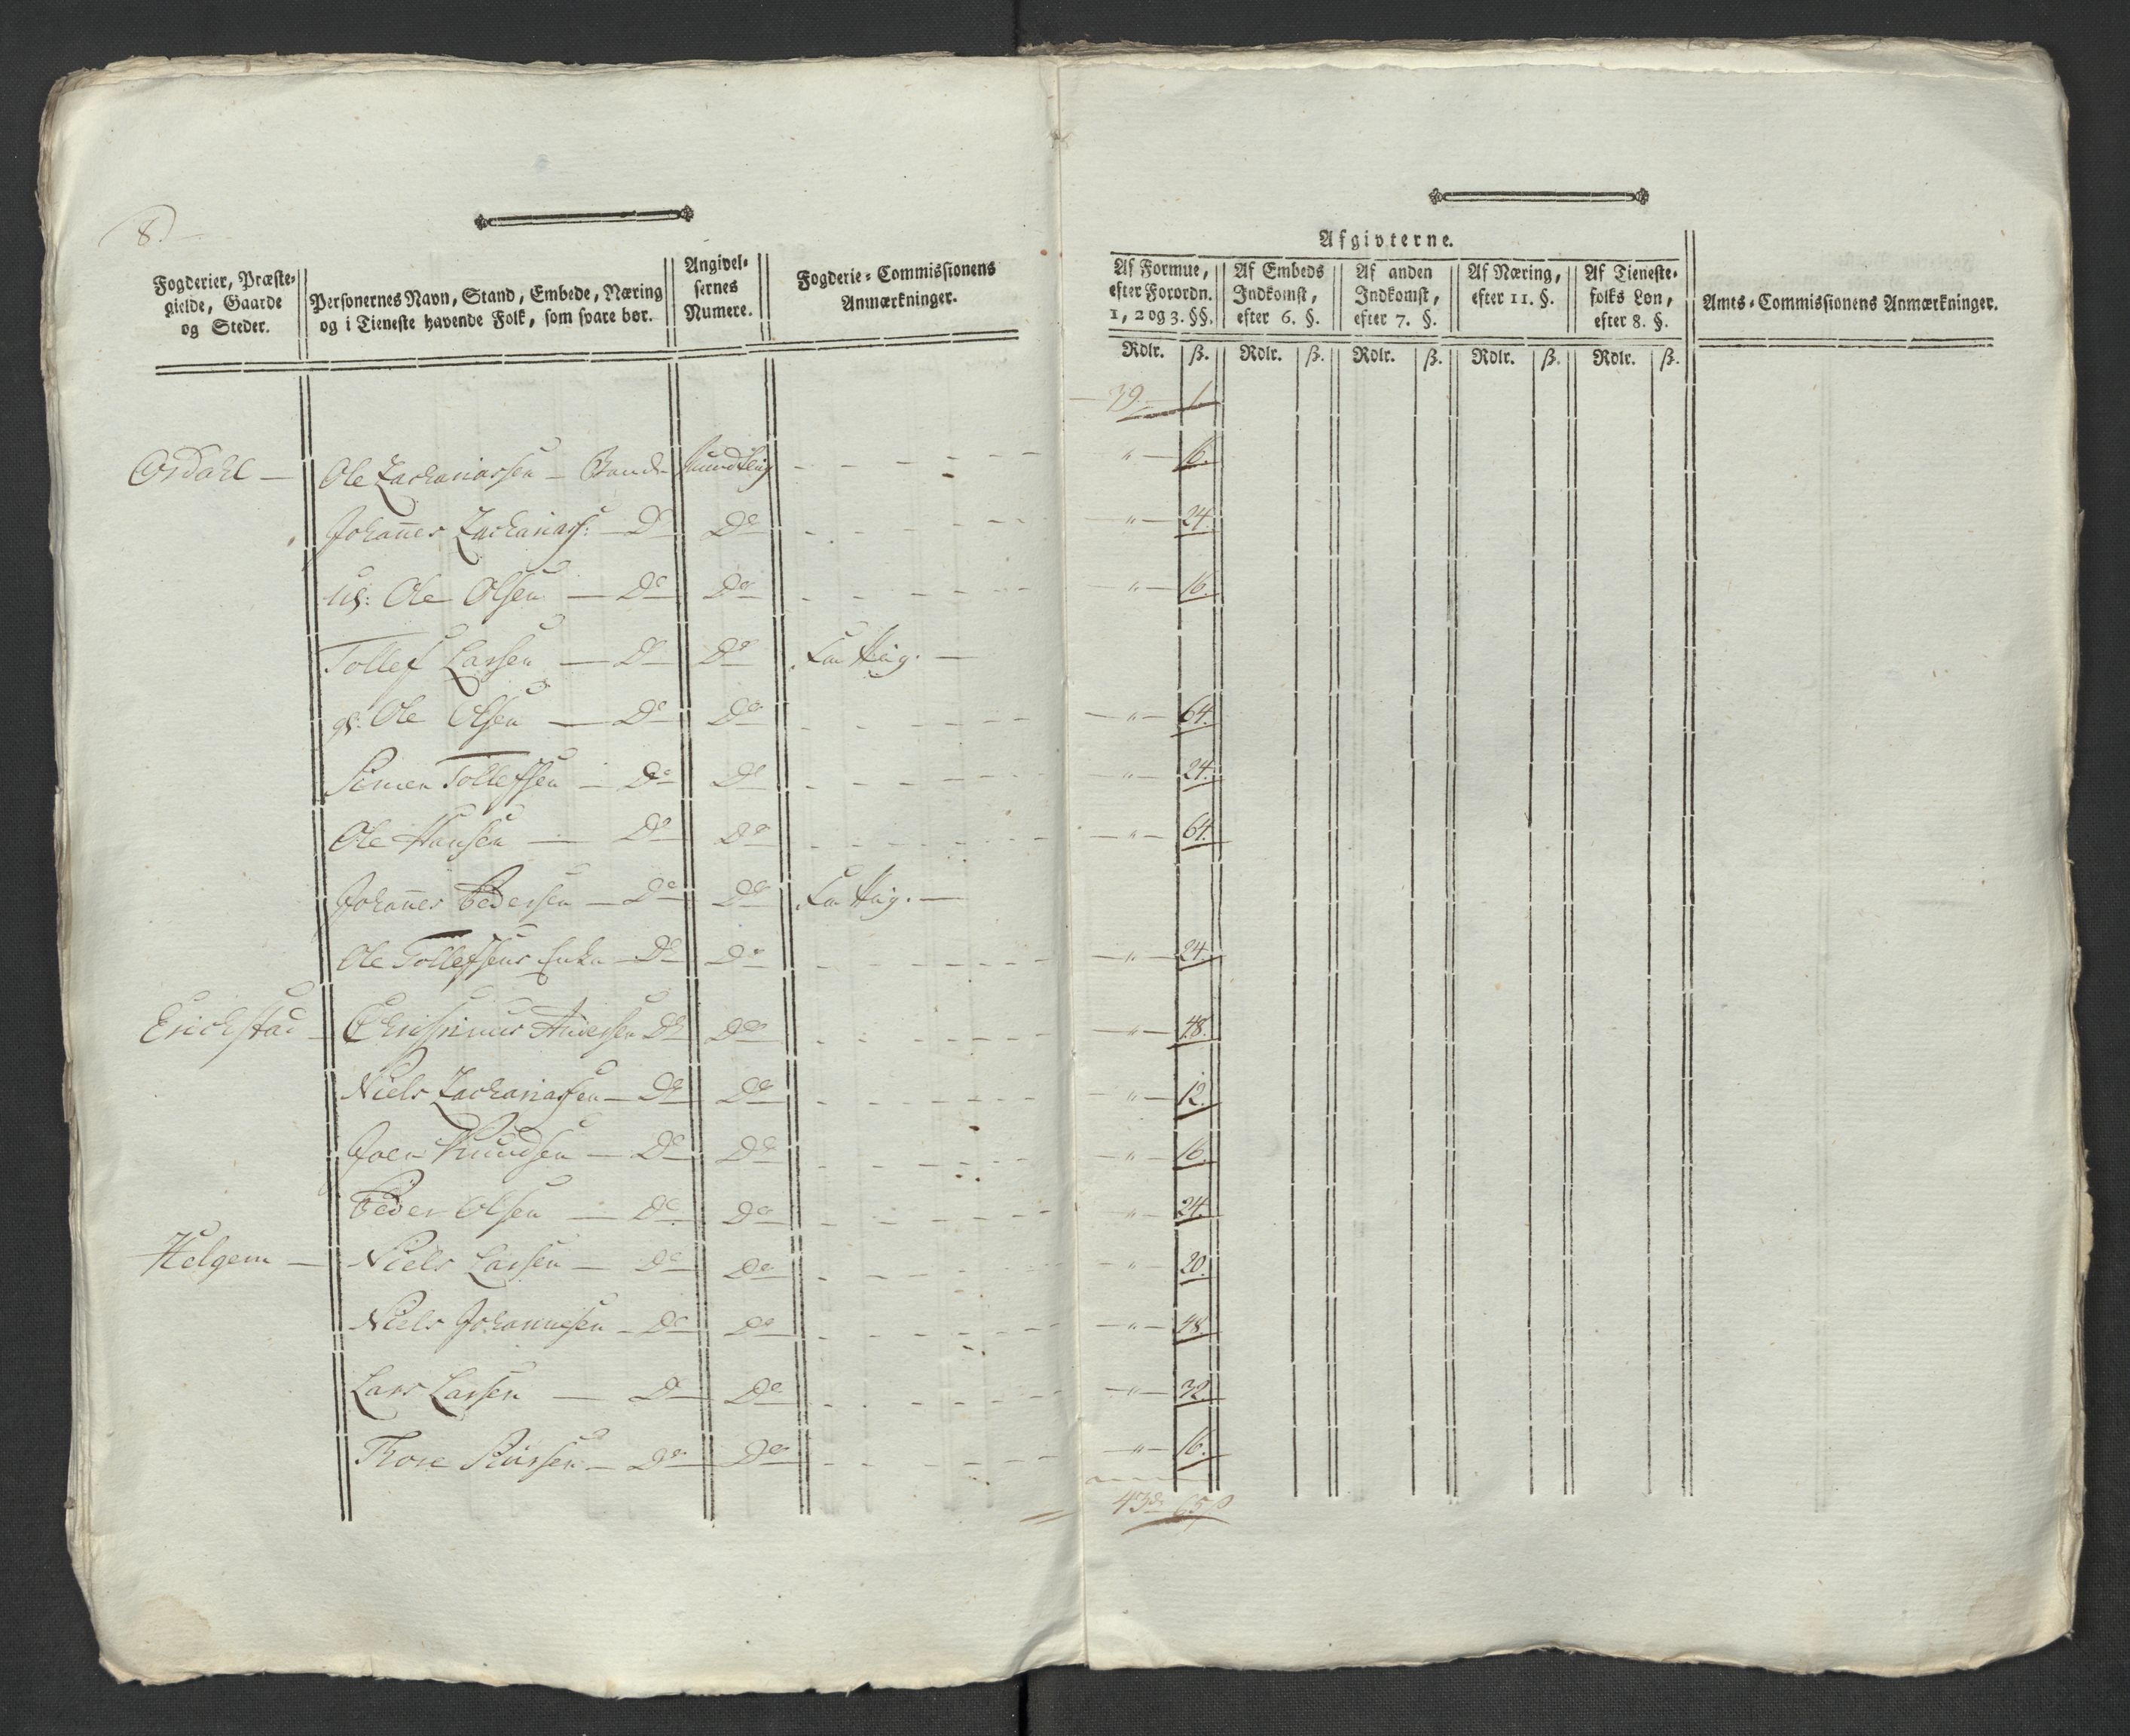 8.
Fogderier, Præste-
gielde, Gaarde
og Steder.
Personernes Navn, Stand, Embede, Næring
og i Tieneste havende Folk, som svare bør.
Angivel-
sernes
Numere.
Fogderie-Commissionens
Anmærkninger.
Afgivterne.
Af Formue,
efter Forordn.
1, 2 og 3. §§.
Af Embeds
Indkomst,
efter 6. §.
Af anden
Indkomst,
efter 7. §.
Af Næring,
efter 11. §.
Af Tieneste-
folks Løn,
efter 8. §.
Amts-Commissionens Anmærkninger.
Rdlr. ß. Rdlr. ß. Rdlr. ß. Rdlr. ß. Rdlr. ß.
39 1
Ordahl — Ole Zachariassen — Bonde Mundtlig " 16.
Johannes Zachariass: — Do Do " 24.
Us: Ole Olsen — Do Do " 16.
Tollef Larsen — Do Do Fattig. —
gl: Ole Olsen — Do Do " 64.
Simen Tollefsen — Do Do " 24.
Ole Hansen — Do Do " 64.
Johannes Pedersen — Do Do Fattig. —
Ole Tollefsens Enke — Do Do " 24.
Erichstad — Christinus Andersen Do Do " 48.
Niels Zachariassen — Do Do " 12.
Joen Knudsen — Do Do " 16.
Peder Olsen — Do Do " 24.
Helgem — Niels Larsen — Do Do " 20.
Niels Johannesen — Do Do " 48
Lars Larsen — Do Do " 32.
Thore Siversen — Do Do " 16.
43 rd 65 ß